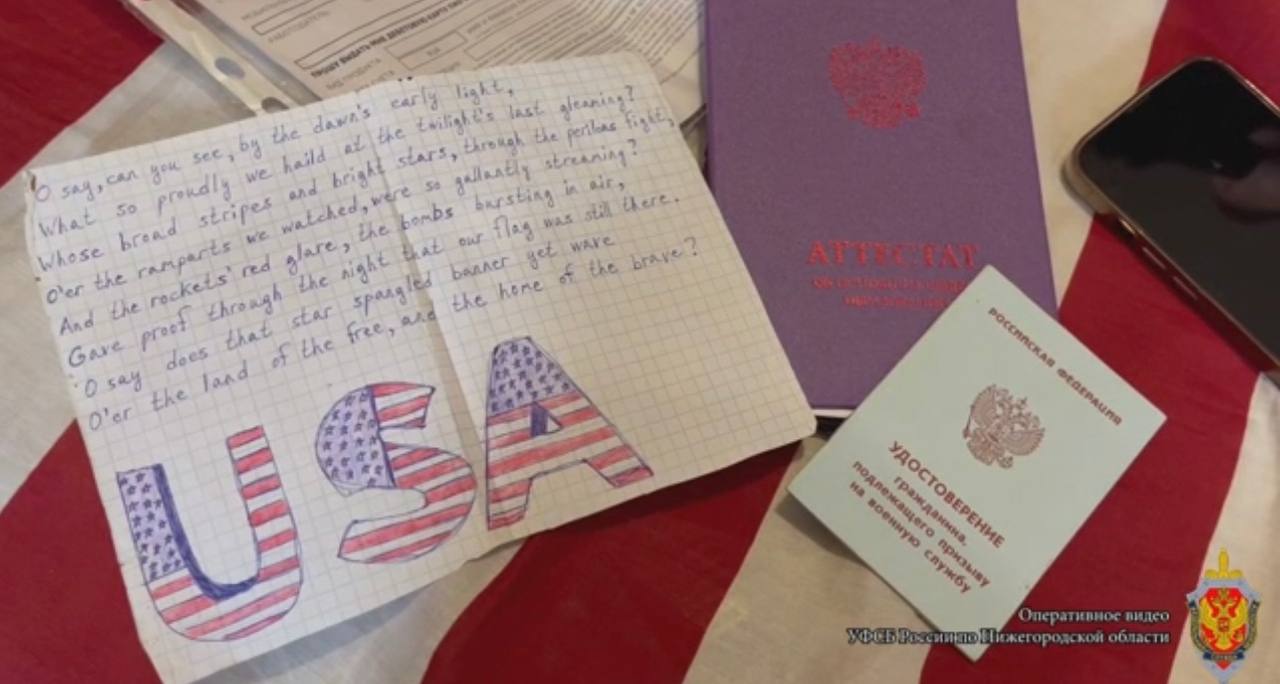 ПРОШУ ВЫДАТЬ МНЕ ДЕБЕТОВУЮ КАРТУ
O say, can you see, by the dawn's early light,
What so proudly we haild at the twilight's last gleaming?
Whose broad stripes and bright stars, through the perilous fight,
O'er the ramparts we watched, were so gallantly streaming?
And the rockets' red glare, the bombs bursting in air,
Gave proof through the night that our flag was still there.
O say does that star spangled banner yet wave
O'er the land of the free, and the home of the brave?
USA
АТТЕСТАТ
РОССИЙСКАЯ ФЕДЕРАЦИЯ
УДОСТОВЕРЕНИЕ
гражданина,
подлежащего призыву
на военную службу
Оперативное видео
УФСБ России по Нижегородской области